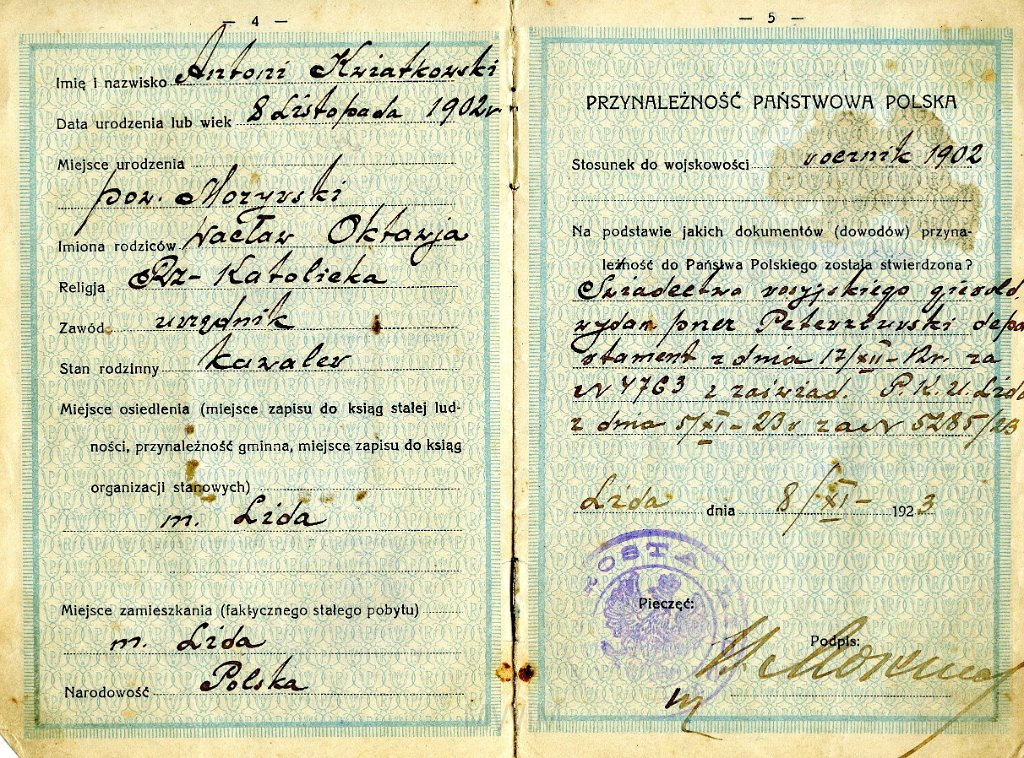 — 4 —
Imię i nazwisko Antoni Kwiatkowski
Data urodzenia lub wiek 8 Listopada 1902 r
Miejsce urodzenia
pow. Mozyrski
Imiona rodziców Wacław Oktawja
Religja Rz-Katolicka
Zawód urzędnik
Stan rodzinny kawaler
Miejsce osiedlenia (miejsce zapisu do ksiąg stałej lud-
ności, przynależność gminna, miejsce zapisu do ksiąg
organizacji stanowych)
m. Lida
Miejsce zamieszkania (faktycznego stałego pobytu)
m. Lida
Narodowość Polska
— 5 —
PRZYNALEŻNOŚĆ PAŃSTWOWA POLSKA
Stosunek do wojskowości rocznik 1902
Na podstawie jakich dokumentów (dowodów) przyna-
leżność do Państwa Polskiego została stwierdzona?
Swiadectwa rosyjskiego gierold.
wydan przez Peterzburski depa
rtament z dnia 17/XII-12 r. za
N 4763 i zaświad. P.K.U. Lida
z dnia 5/XI-23 r za N 5285/23
Lida dnia 8/XI- 1923
STA
Pieczęć:
Podpis: